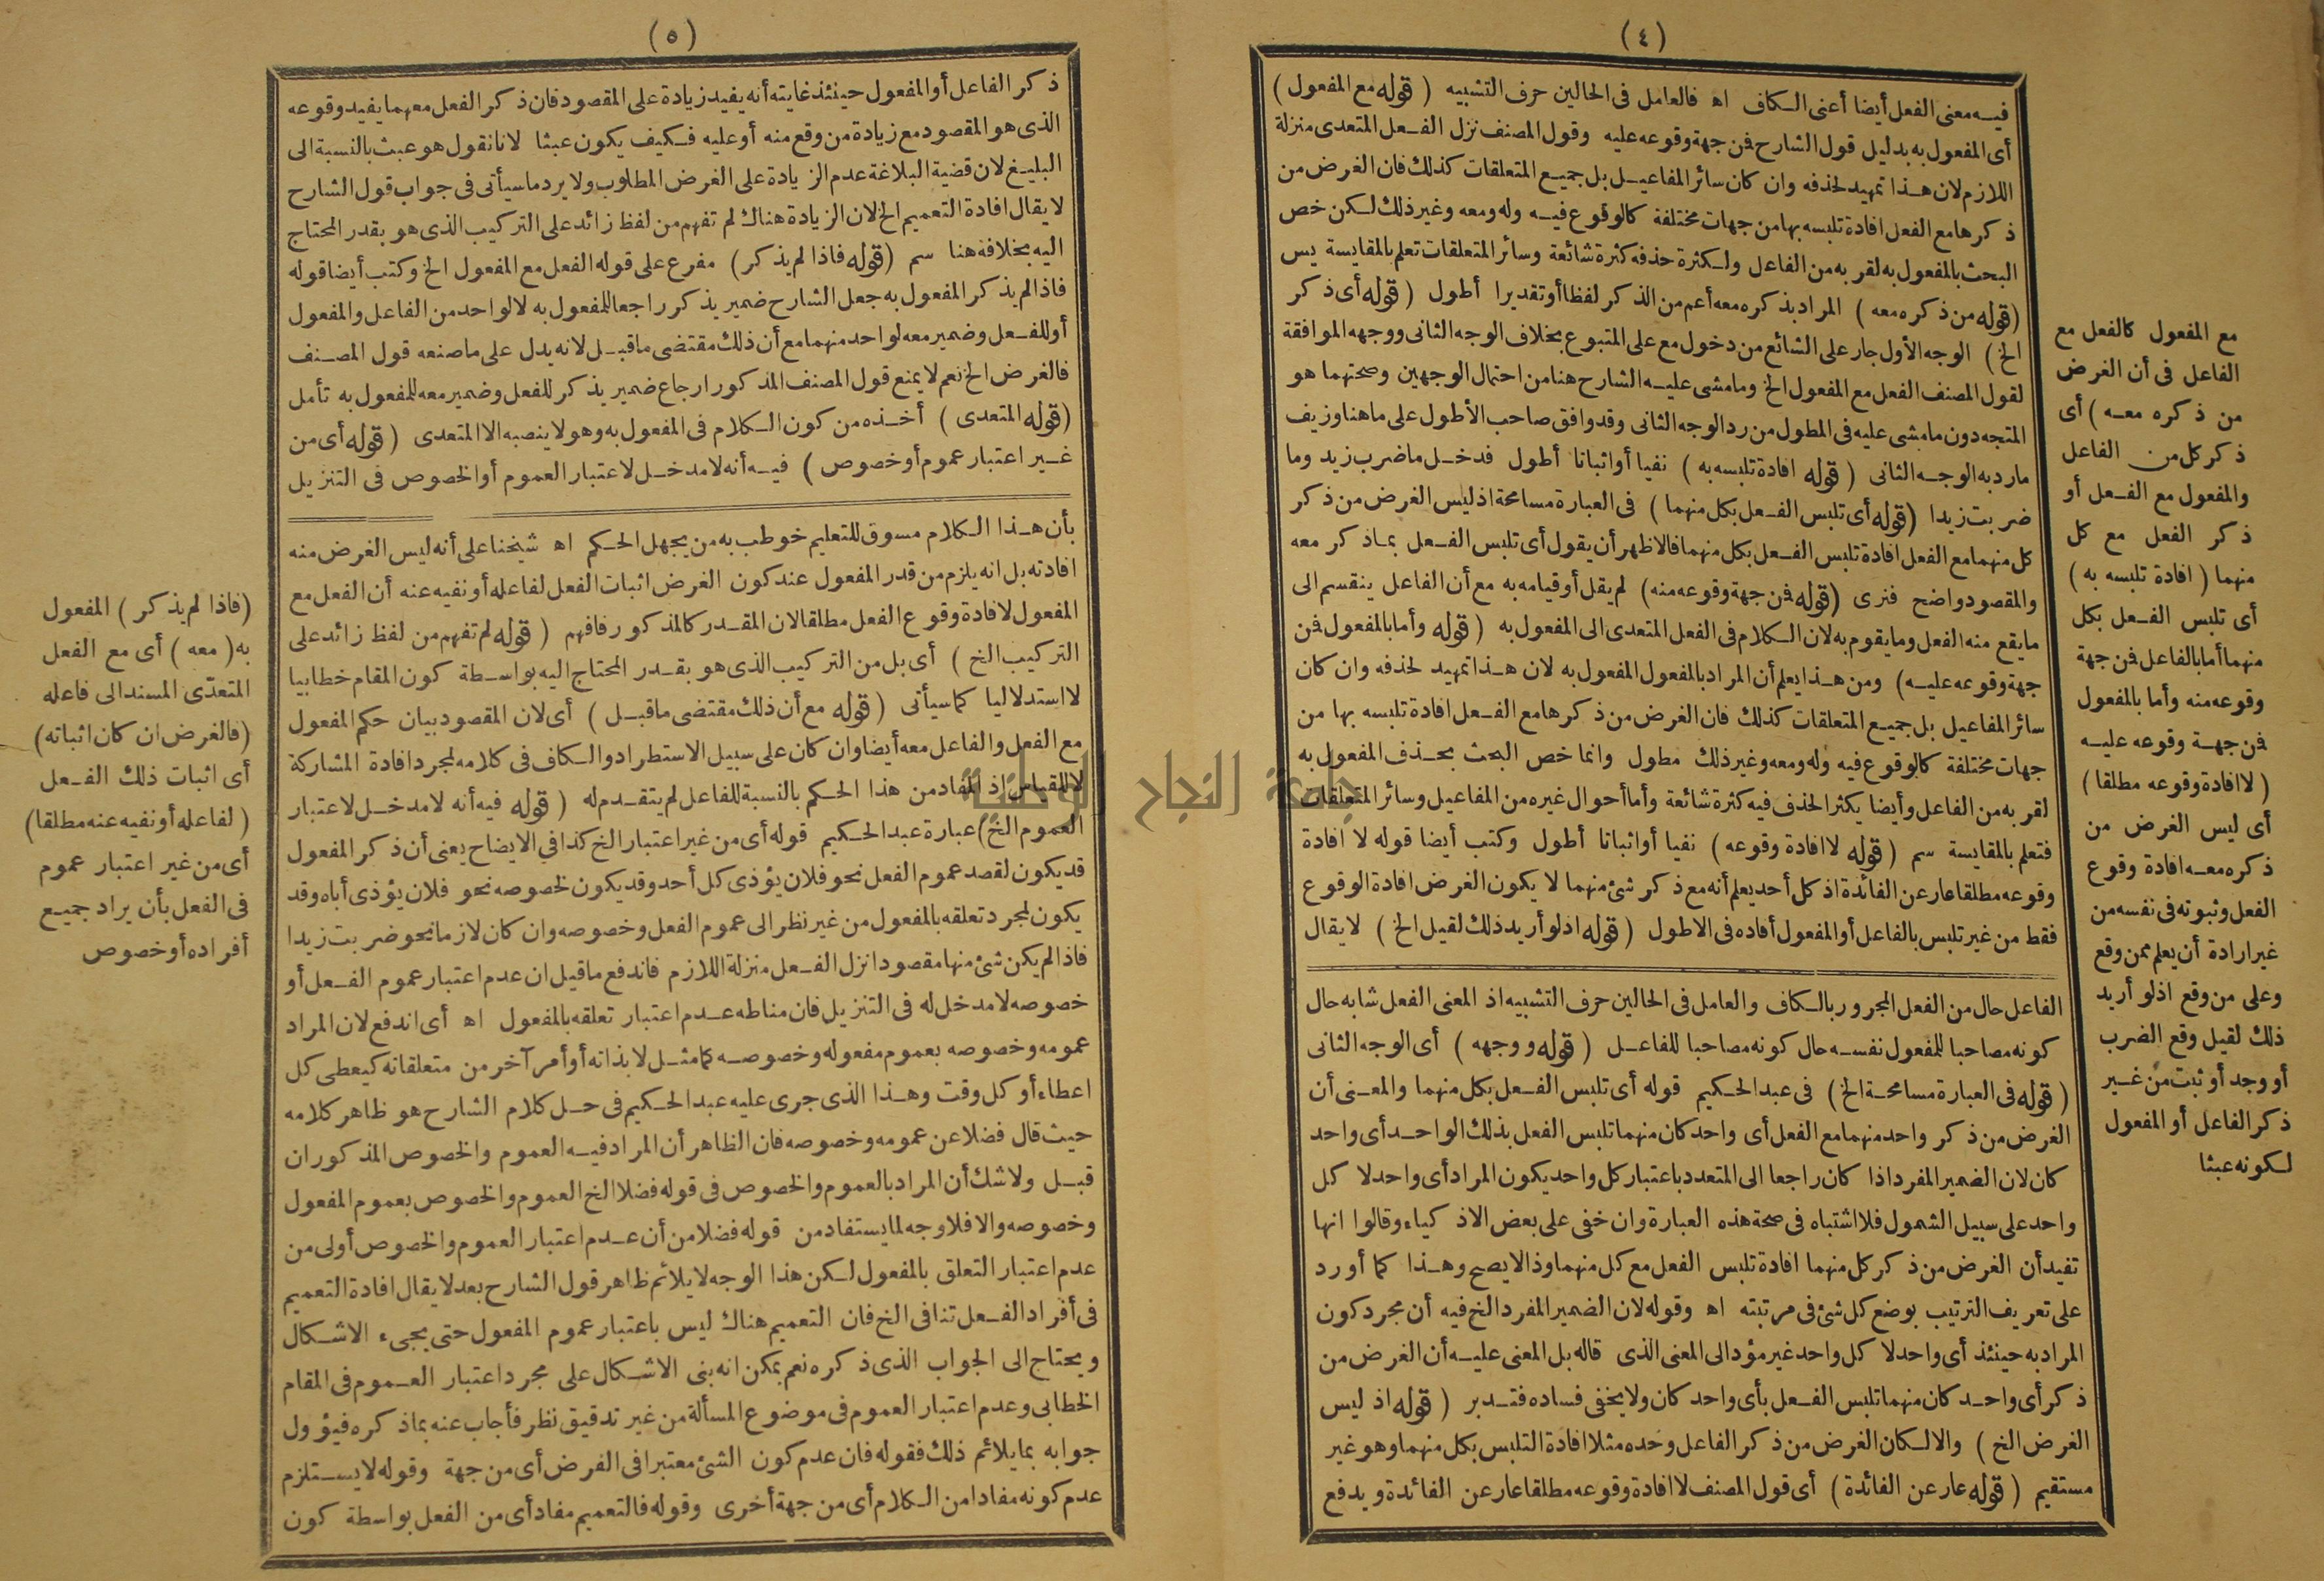 (٤)
فيه معنى الفعل أيضا أعنى الكاف اه فالعامل فى الحالين حرف التشبيه ( قوله مع المفعول )
أى المفعول به بدليل قول الشارح فمن جهة وقوعه عليه وقول المصنف نزل الفعل المتعدى منزلة
اللازم لان هذا تمهيد لحذفه وان كان سائر المفاعيل بل جميع المتعلقات كذلك فان الغرض من
ذكرها مع الفعل افادة تلبسه بها من جهات مختلفة كالوقوع فيه وله ومعه وغير ذلك لكن خص
البحث بالمفعول به لقربه من الفاعل ولكثرة حذفه كثرة شائعة وسائر المتعلقات تعلم بالمقايسة يس
(قوله من ذكره معه ) المراد بذكره معه أعم من الذكر لفظا أو تقديرا أطول ( قوله أى ذكر
الخ ) الوجه الأول جار على الشائع من دخول مع على المتبوع بخلاف الوجه الثانى ووجهه الموافقة
لقول المصنف الفعل مع المفعول الخ وما مشى عليه الشارح هنا من احتمال الوجهين وصحتهما هو
المتجه دون ما مشى عليه فى المطول من رد الوجه الثانى وقد وافق صاحب الأطول على ما هنا وزيف
مارد به الوجه الثانى ( قوله افادة تلبسه به ) نفيا أو اثباتا أطول فدخل ما ضرب زيد وما
ضربت زيدا (قوله أى تلبس الفعل بكل منهما ) فى العبارة مسامحة اذ ليس الغرض من ذكر
كل منهما مع الفعل افادة تلبس الفعل بكل منهما فالاظهر أن يقول أى تلبس الفعل بما ذكر معه
والمقصود واضح فنرى (قوله فمن جهة وقوعه منه) لم يقل أو قيامه به مع أن الفاعل ينقسم الى
ما يقع منه الفعل وما يقوم به لان الكلام فى الفعل المتعدى الى المفعول به ( قوله وأما بالمفعول فمن
جهة وقوعه عليه) ومن هذا يعلم أن المراد بالمفعول المفعول به لان هذا تمهيد لحذفه وان كان
سائر المفاعيل بل جميع المتعلقات كذلك فان الغرض من ذكرها مع الفعل افادة تلبسه بها من
جهات مختلفة كالوقوع فيه وله ومعه وغير ذلك مطول وانما خص البحث بحذف المفعول به
لقربه من الفاعل وأيضا يكثر الحذف فيه كثرة شائعة وأما أحوال غيره من المفاعيل وسائر المتعلقات
فتعلم بالمقايسة سم ( قوله لا افادة وقوعه ) نفيا أو اثباتا أطول وكتب أيضا قوله لا افادة
وقوعه مطلقا عار عن الفائدة اذ كل أحد يعلم أنه مع ذكر شئ منهما لا يكون الغرض افادة الوقوع
فقط من غير تلبس بالفاعل أو المفعول أفاده فى الاطول ( قوله اذ لو أريد ذلك لقيل الخ ) لا يقال
الفاعل حال من الفعل المجرور بالكاف والعامل فى الحالين حرف التشبيه اذ المعنى الفعل شابه حال
كونه مصاحبا للمفعول نفسه حال كونه مصاحبا للفاعل ( قوله ووجهه ) أى الوجه الثانى
( قوله فى العبارة مسامحة الخ ) فى عبد الحكيم قوله أى تلبس الفعل بكل منهما والمعنى أن
الغرض من ذكر واحد منهما مع الفعل أى واحد كان منهما تلبس الفعل بذلك الواحد أى واحد
كان لان الضمير المفرد اذا كان راجعا الى المتعدد باعتبار كل واحد يكون المراد أى واحد لا كل
واحد على سبيل الشمول فلا اشتباه فى صحة هذه العبارة وان خفى على بعض الاذكياء وقالوا انها
تفيد أن الغرض من ذكر كل منهما افادة تلبس الفعل مع كل منهما وذا لا يصح وهذا كما أورد
على تعريف الترتيب بوضع كل شئ فى مرتبته اه وقوله لان الضمير المفرد الخ فيه أن مجرد كون
المراد به حينئذ أى واحد لا كل واحد غير مؤد الى المعنى الذى قاله بل المعنى عليه أن الغرض من
ذكر أى واحد كان منهما تلبس الفعل بأى واحد كان ولا يخفى فساده فتدبر ( قوله اذ ليس
الغرض الخ ) والا لكان الغرض من ذكر الفاعل وحده مثلا افادة التلبس بكل منهما وهو غير
مستقيم ( قوله عار عن الفائدة ) أى قول المصنف لا افادة وقوعه مطلقا عار عن الفائدة ويدفع
مع المفعول كالفعل مع
الفاعل فى أن الغرض
من ذكره معه ) أى
ذكر كل من الفاعل
والمفعول مع الفعل أو
ذكر الفعل مع كل
منهما ( افادة تلبسه به )
أى تلبس الفعل بكل
منهما أما بالفاعل فمن جهة
وقوعه منه وأما بالمفعول
فمن جهة وقوعه عليه
( لا افادة وقوعه مطلقا )
أى ليس الغرض من
ذكره معه افادة وقوع
الفعل وثبوته فى نفسه من
غير ارادة أن يعلم ممن وقع
وعلى من وقع اذ لو أريد
ذلك لقيل وقع الضرب
أو وجد أو ثبت من غير
ذكر الفاعل أو المفعول
لكونه عبثا
(٥)
ذكر الفاعل أو المفعول حينئذ غايته أنه يفيد زيادة على المقصود فان ذكر الفعل معهما يفيد وقوعه
الذى هو المقصود مع زيادة من وقع منه أو عليه فكيف يكون عبثا لانا نقول هو عبث بالنسبة الى
البليغ لان قضية البلاغة عدم الزيادة على الغرض المطلوب ولا يرد ما سيأتى فى جواب قول الشارح
لا يقال افادة التعميم الخ لان الزيادة هناك لم تفهم من لفظ زائد على التركيب الذى هو بقدر المحتاج
اليه بخلافه هنا سم (قوله فاذا لم يذكر) مفرع على قوله الفعل مع المفعول الخ وكتب أيضا قوله
فاذا لم يذكر المفعول به جعل الشارح ضمير يذكر راجعا للمفعول به لا لواحد من الفاعل والمفعول
أو للفعل وضمير معه لواحد منهما مع أن ذلك مقتضى ما قبل لانه يدل على ما صنعه قول المصنف
فالغرض الخ نعم لا يمنع قول المصنف المذكور ارجاع ضمير يذكر للفعل وضمير معه للمفعول به تأمل
(قوله المتعدى ) أخذه من كون الكلام فى المفعول به وهو لا ينصبه الا المتعدى ( قوله أى من
غير اعتبار عموم أو خصوص ) فيه أنه لا مدخل لاعتبار العموم أو الخصوص فى التنزيل
بأن هذا الكلام مسوق للتعليم خوطب به من يجهل الحكم اه شيخنا على أنه ليس الغرض منه
افادته بل انه يلزم من قدر المفعول عند كون الغرض اثبات الفعل لفاعله أو نفيه عنه أن الفعل مع
المفعول لافادة وقوع الفعل مطلقا لان المقدر كالمذكور فافهم ( قوله لم تفهم من لفظ زائد على
التركيب الخ ) أى بل من التركيب الذى هو بقدر المحتاج اليه بواسطة كون المقام خطابيا
لا استدلاليا كما سيأتى ( قوله مع أن ذلك مقتضى ما قبل ) أى لان المقصود بيان حكم المفعول
مع الفعل والفاعل معه أيضا وان كان على سبيل الاستطراد والكاف فى كلامه لمجرد افادة المشاركة
لا للقياس اذ المفاد من هذا الحكم بالنسبة للفاعل لم يتقدم له ( قوله فيه أنه لا مدخل لاعتبار
العموم الخ) عبارة عبد الحكيم قوله أى من غير اعتبار الخ كذا فى الايضاح يعنى أن ذكر المفعول
قد يكون لقصد عموم الفعل نحو فلان يؤذى كل أحد وقد يكون لخصوصه نحو فلان يؤذى أباه وقد
يكون لمجرد تعلقه بالمفعول من غير نظر الى عموم الفعل وخصوصه وان كان لازما نحو ضربت زيدا
فاذا لم يكن شئ منها مقصودا نزل الفعل منزلة اللازم فاندفع ما قيل ان عدم اعتبار عموم الفعل أو
خصوصه لا مدخل له فى التنزيل فان مناطه عدم اعتبار تعلقه بالمفعول اه أى اندفع لان المراد
عمومه وخصوصه بعموم مفعوله وخصوصه كما مثل لا بذاته أو أمر آخر من متعلقاته كيعطى كل
اعطاء أو كل وقت وهذا الذى جرى عليه عبد الحكيم فى حل كلام الشارح هو ظاهر كلامه
حيث قال فضلا عن عمومه وخصوصه فان الظاهر أن المراد فيه العموم والخصوص المذكوران
قبل ولا شك أن المراد بالعموم والخصوص فى قوله فضلا الخ العموم والخصوص بعموم المفعول
وخصوصه والا فلا وجه لما يستفاد من قوله فضلا من أن عدم اعتبار العموم والخصوص أولى من
عدم اعتبار التعلق بالمفعول لكن هذا الوجه لا يلائم ظاهر قول الشارح بعد لا يقال افادة التعميم
فى أفراد الفعل تنافى الخ فان التعميم هناك ليس باعتبار عموم المفعول حتى يجىء الاشكال
ويحتاج الى الجواب الذى ذكره نعم يمكن انه بنى الاشكال على مجرد اعتبار العموم فى المقام
الخطابى وعدم اعتبار العموم فى موضوع المسألة من غير تدقيق نظر فأجاب عنه بما ذكره فيؤول
جوابه بما يلائم ذلك فقوله فان عدم كون الشئ معتبرا فى الغرض أى من جهة وقوله لا يستلزم
عدم كونه مفادا من الكلام أى من جهة أخرى وقوله فالتعميم مفاد أى من الفعل بواسطة كون
(فاذا لم يذكر ) المفعول
به ( معه ) أى مع الفعل
المتعدّى المسند الى فاعله
(فالغرض ان كان اثباته)
أى اثبات ذلك الفعل
( لفاعله أو نفيه عنه مطلقا)
أى من غير اعتبار عموم
فى الفعل بأن يراد جميع
أفراده أو خصوص
جامعة النجاح الوطنية